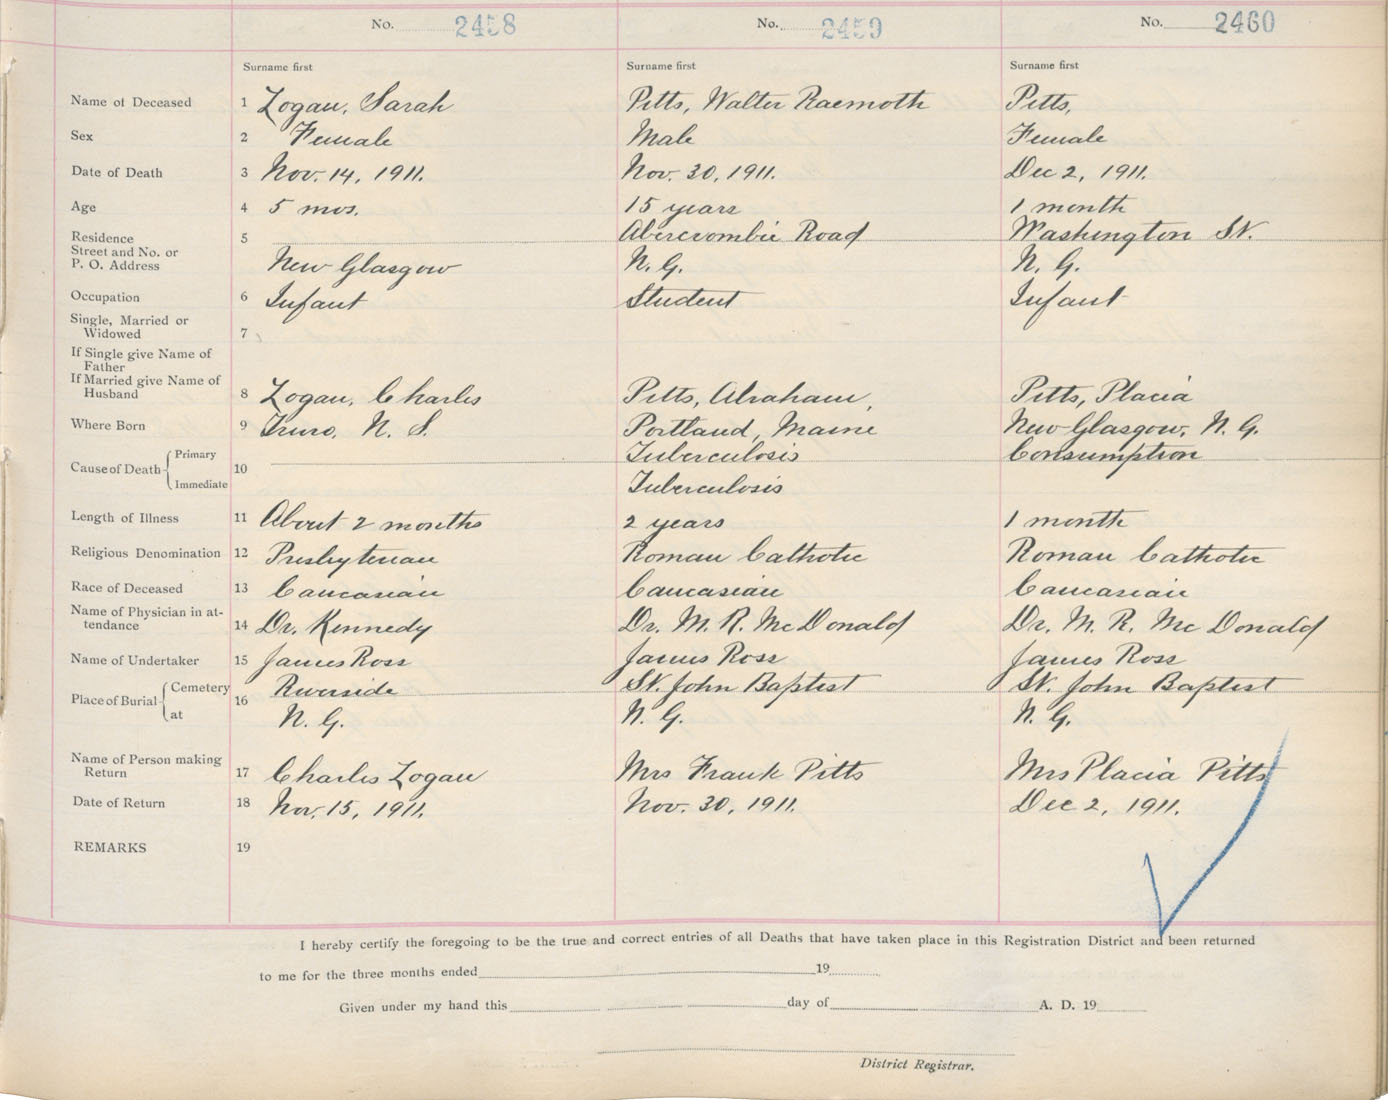 No. 2458 No. 2459 No. 2460
Surname first Surname first Surname first
Name of Deceased 1 Logan, Sarah Pitts, Walter Raemoth Pitts,
Sex 2 Female Male Female
Date of Death 3 Nov. 14, 1911. Nov. 30, 1911. Dec 2, 1911.
Age 4 5 mos. 15 years 1 month
Residence 5 Abercrombie Road Washington St.
Street and No. or
P. O. Address New Glasgow N. G. N. G.
Occupation 6 Infant Student Infant
Single, Married or
Widowed 7
If Single give Name of
Father
If Married give Name of
Husband 8 Logan, Charles Pitts, Abraham, Pitts, Placia
Where Born 9 Truro, N. S. Portland, Maine New Glasgow, N. G.
Cause of Death Primary 10 Tuberculosis Consumption
Immediate Tuberculosis
Length of Illness 11 About 2 months 2 years 1 month
Religious Denomination 12 Presbyterian Roman Catholic Roman Catholic
Race of Deceased 13 Caucasian Caucasian Caucasian
Name of Physician in at-
tendance 14 Dr. Kennedy Dr. M. R. McDonald Dr. M. R. McDonald
Name of Undertaker 15 James Ross James Ross James Ross
Place of Burial Cemetery 16 Riverside St. John Baptist St. John Baptist
at N. G. N. G. N. G.
Name of Person making
Return 17 Charles Logan Mrs Frank Pitts Mrs Placia Pitts
Date of Return 18 Nov. 15, 1911. Nov. 30, 1911. Dec 2, 1911.
REMARKS 19
I hereby certify the foregoing to be the true and correct entries of all Deaths that have taken place in this Registration District and been returned
to me for the three months ended 19
Given under my hand this day of A. D. 19
District Registrar.